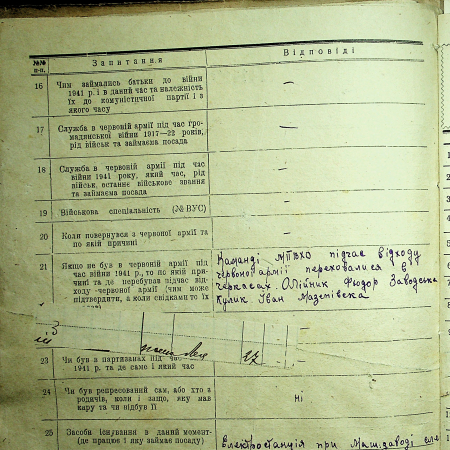 №№ п-п.
Запитання
Відповіді
16
Чим займались батьки до війни
1941 р. і в даний час та належність
їх до комуністичної партії і з
якого часу
—
17
Служба в червоній армії під час гро-
мадянської війни 1917—22 років,
рід військ та займаєма посада
—
18
Служба в червоній армії під час
війни 1941 року, який час, рід
військ, останнє військове звання
та займаєма посада
—
19
Військова спеціальність (№ ВУС)
—
20
Коли повернувся з червоної армії та
по якій причині
—
21
Якщо не був в червоній армії під
час війни 1941 р., то по якій при-
чині та де перебував підчас від-
ходу червоної армії (чим може
підтвердити, а коли свідками то їх
Команді МПВХО підчас відходу
червоної армії переховалися в
Черкасах. Олійник Фюдор Заводська
Кулик Іван
3
17
23
Чи був в партизанах під час
1941 р. та де саме і який час
24
Чи був репресований сам, або хто з
родичів, коли і защо, яку мав
кару та чи відбув її
Ні
25
Засоби існування в даний момент-
(де працює і яку займає посаду)
Електростанція при